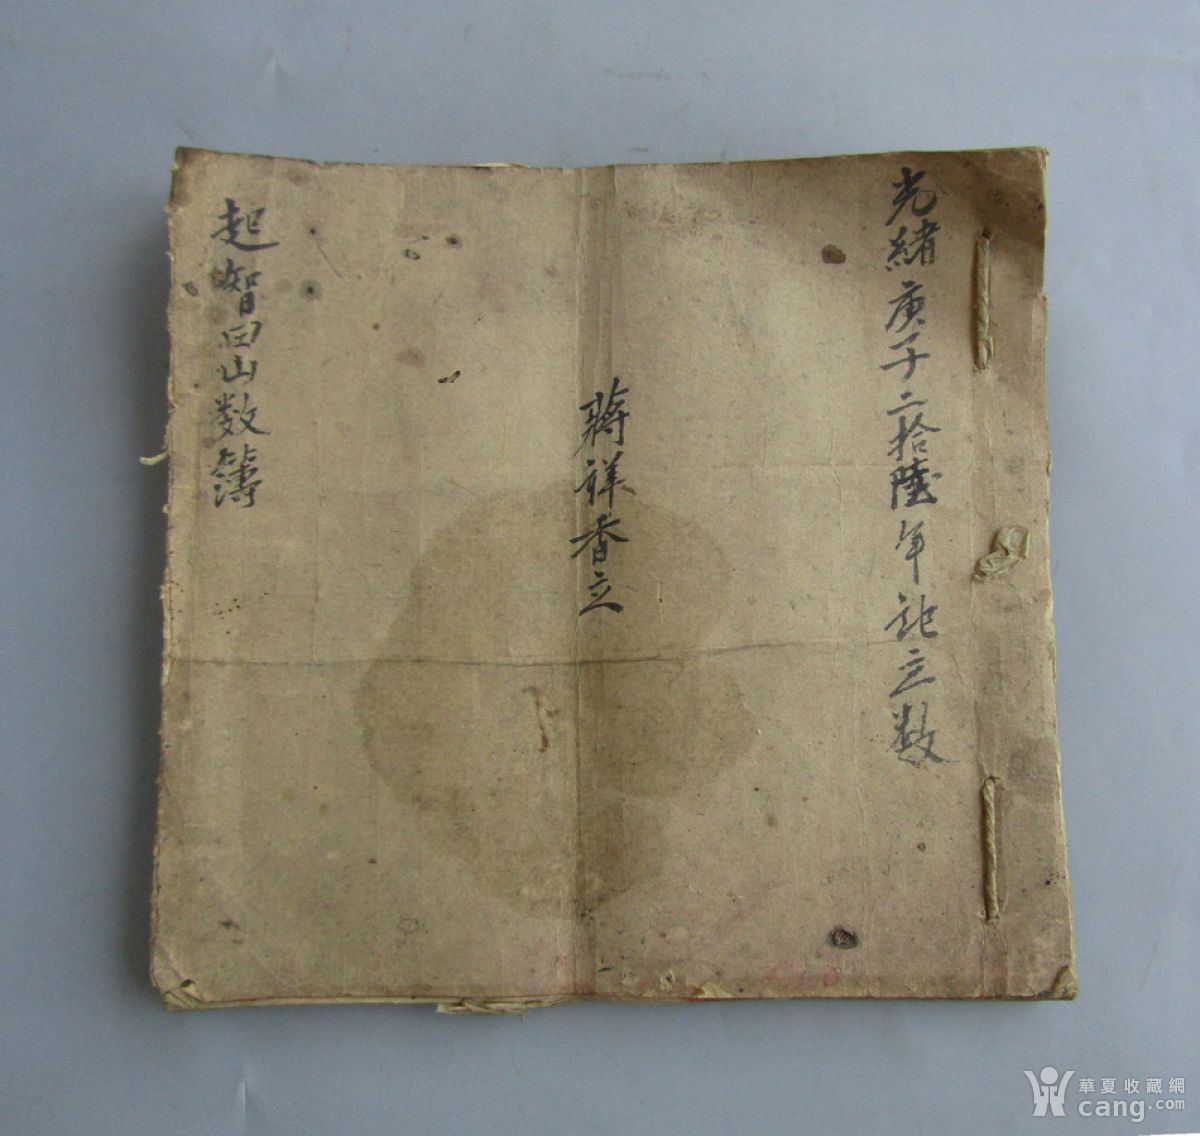 光緒庚子二拾陸年記立数
蔣祥香立
起智田山数簿
華夏收藏網
cang.com